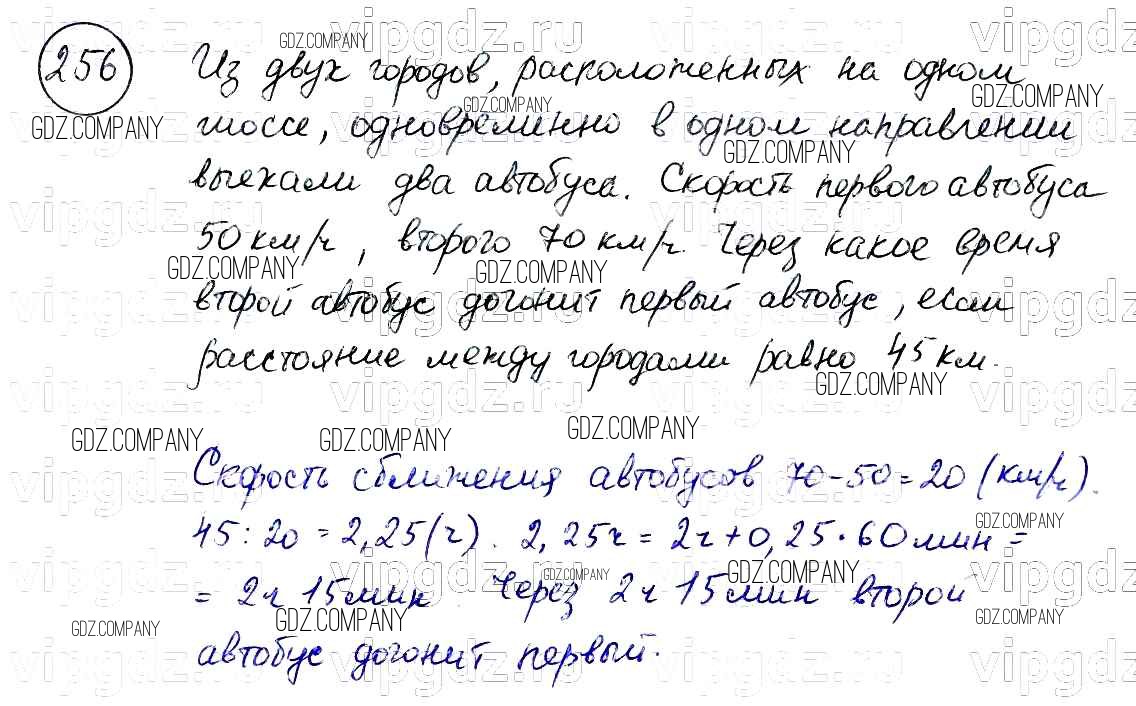 256
Из двух городов, расположенных на одном
шоссе, одновременно в одном направлении
выехали два автобуса. Скорость первого автобуса
50 км/ч, второго 70 км/ч. Через какое время
второй автобус догонит первый автобус, если
расстояние между городами равно 45 км.
Скорость сближения автобусов 70-50=20 (км/ч).
45:20 = 2,25(ч). 2,25ч = 2ч+0,25·60мин =
= 2ч 15мин. Через 2ч 15мин второй
автобус догонит первый.
vipgdz.ru
GDZ.COMPANY